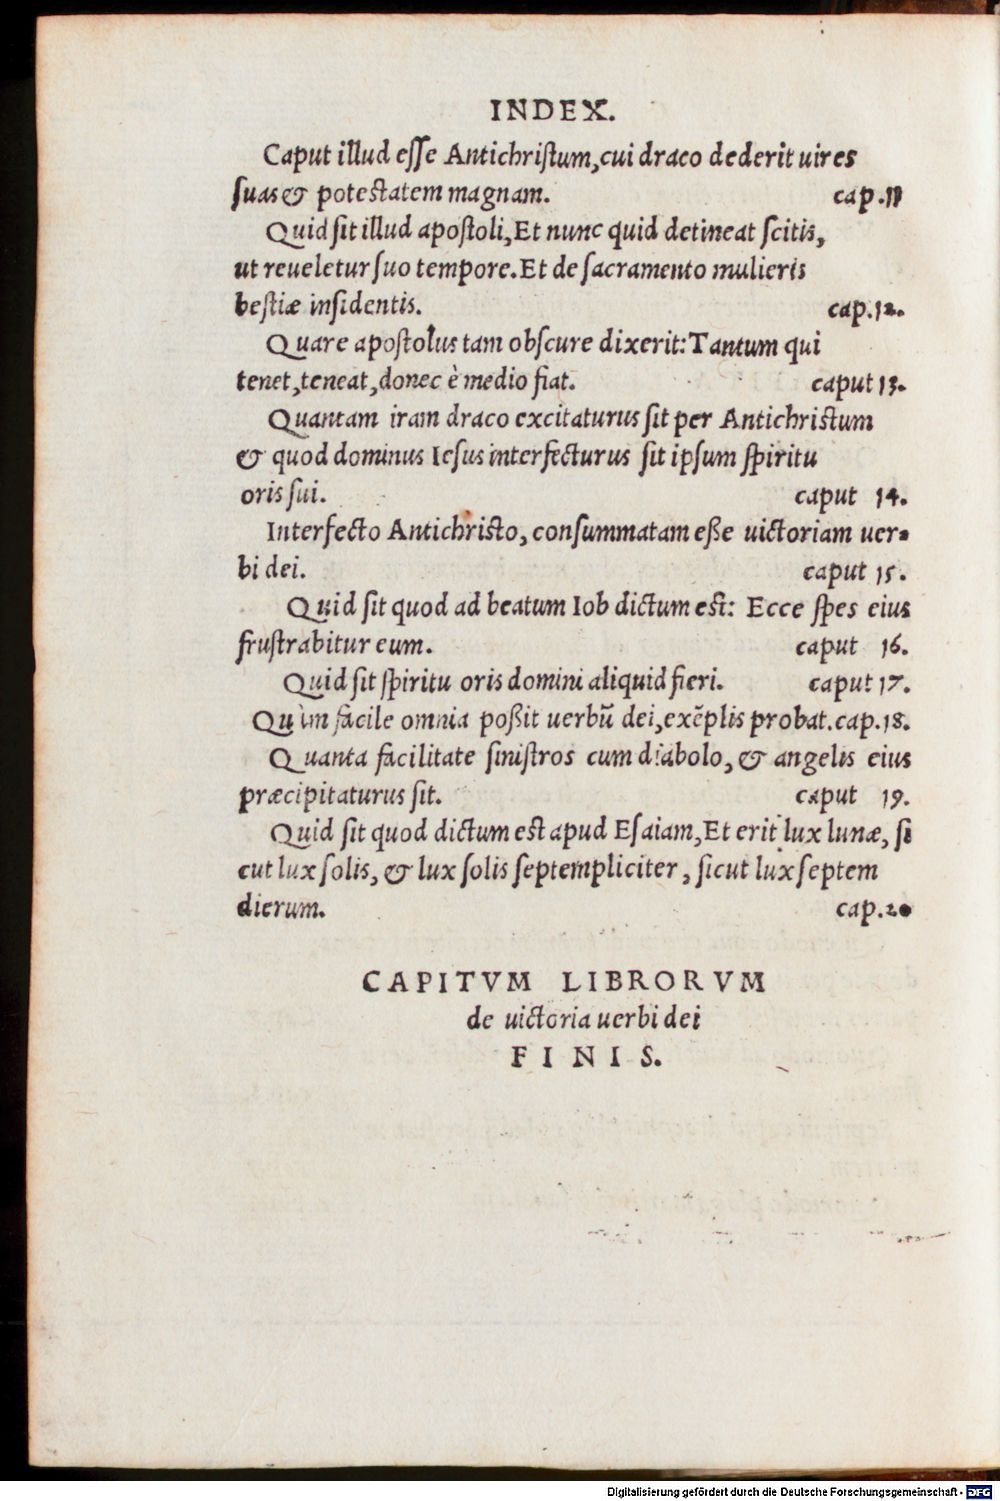 INDEX.
Caput illud esse Antichristum, cui draco dederit uires
suas & potestatem magnam. cap.11
Quid sit illud apostoli, Et nunc quid detineat scitis,
ut reueletur suo tempore. Et de sacramento mulieris
bestiæ insidentis. cap.12.
Quare apostolus tam obscure dixerit: Tantum qui
tenet, teneat, donec è medio fiat. caput 13.
Quantam iram draco excitaturus sit per Antichristum
& quod dominus Iesus interfecturus sit ipsum spiritu
oris sui. caput 14.
Interfecto Antichristo, consummatam eße uictoriam uer-
bi dei. caput 15.
Quid sit quod ad beatum Iob dictum est: Ecce spes eius
frustrabitur eum. caput 16.
Quid sit spiritu oris domini aliquid fieri. caput 17.
Quàm facile omnia poßit uerbũ dei, exẽplis probat. cap.18.
Quanta facilitate sinistros cum diabolo, & angelis eius
præcipitaturus sit. caput 19.
Quid sit quod dictum est apud Esaiam, Et erit lux lunæ, si
cut lux solis, & lux solis septempliciter, sicut lux septem
dierum. cap.20
CAPITVM LIBRORVM
de uictoria uerbi dei
FINIS.
Digitalisierung gefördert durch die Deutsche Forschungsgemeinschaft - DFG